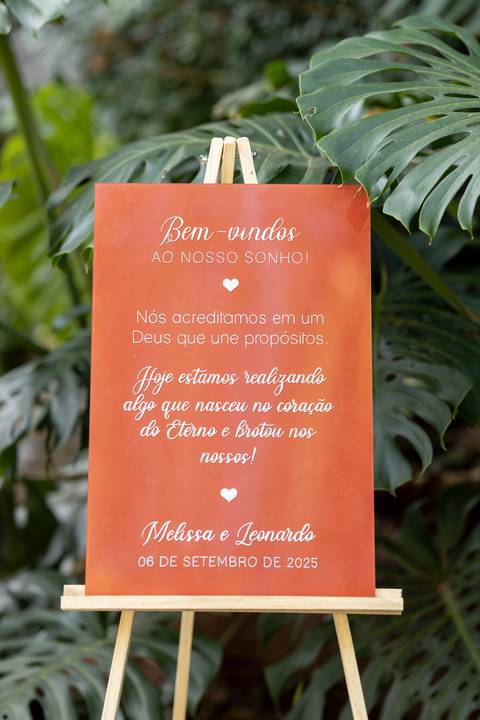 Bem-vindos
AO NOSSO SONHO!
Nós acreditamos em um
Deus que une propósitos.
Hoje estamos realizando
algo que nasceu no coração
do Eterno e brotou nos
nossos!
Melissa e Leonardo
06 DE SETEMBRO DE 2025